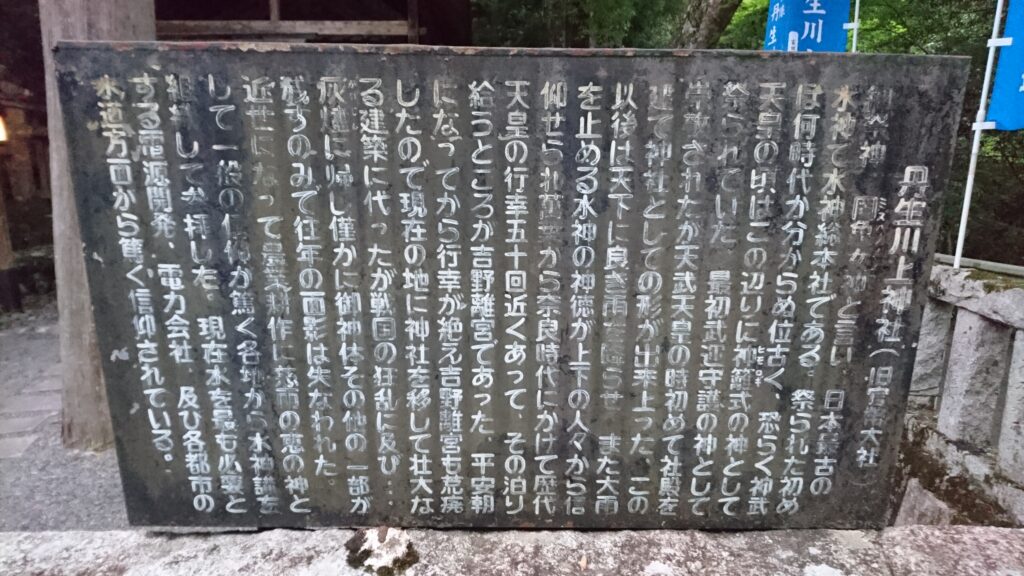 丹生川上神社(旧官幣大社)
御祭神 罔象女神と言い、日本最古の
水神で水神総本社である。祭られた初め
は何時代か分からぬ位古く、恐らく神武
天皇の頃はこの辺りに神籬式の神として
祭られていた。最初武運守護の神として
されたが天武天皇の時初めて社殿を
建て神社としての形が出来上った。この
以後は天下に良き雨を降らせ、また大雨
を止める水神の神徳が上下の人々から信
仰せられ から奈良時代にかけて歴代
天皇の行幸五十回近くあって、その泊り
給うところが吉野離宮であった。平安朝
になってから行幸が絶え吉野離宮も荒廃
したので現在の地に神社を移して壮大な
る建築に代ったが戦国の狂乱に及び
灰燼に帰し僅かに御神体その他の一部が
残すのみで往年の面影は失なわれた。
近世になって農業耕作に慈雨の恵の神と
して一般の信仰が篤く各地から水神講を
組織して参拝した。現在水を最も必要と
する電源開発、電力会社、及び各都市の
水道方面から篤く信仰されている。
生川